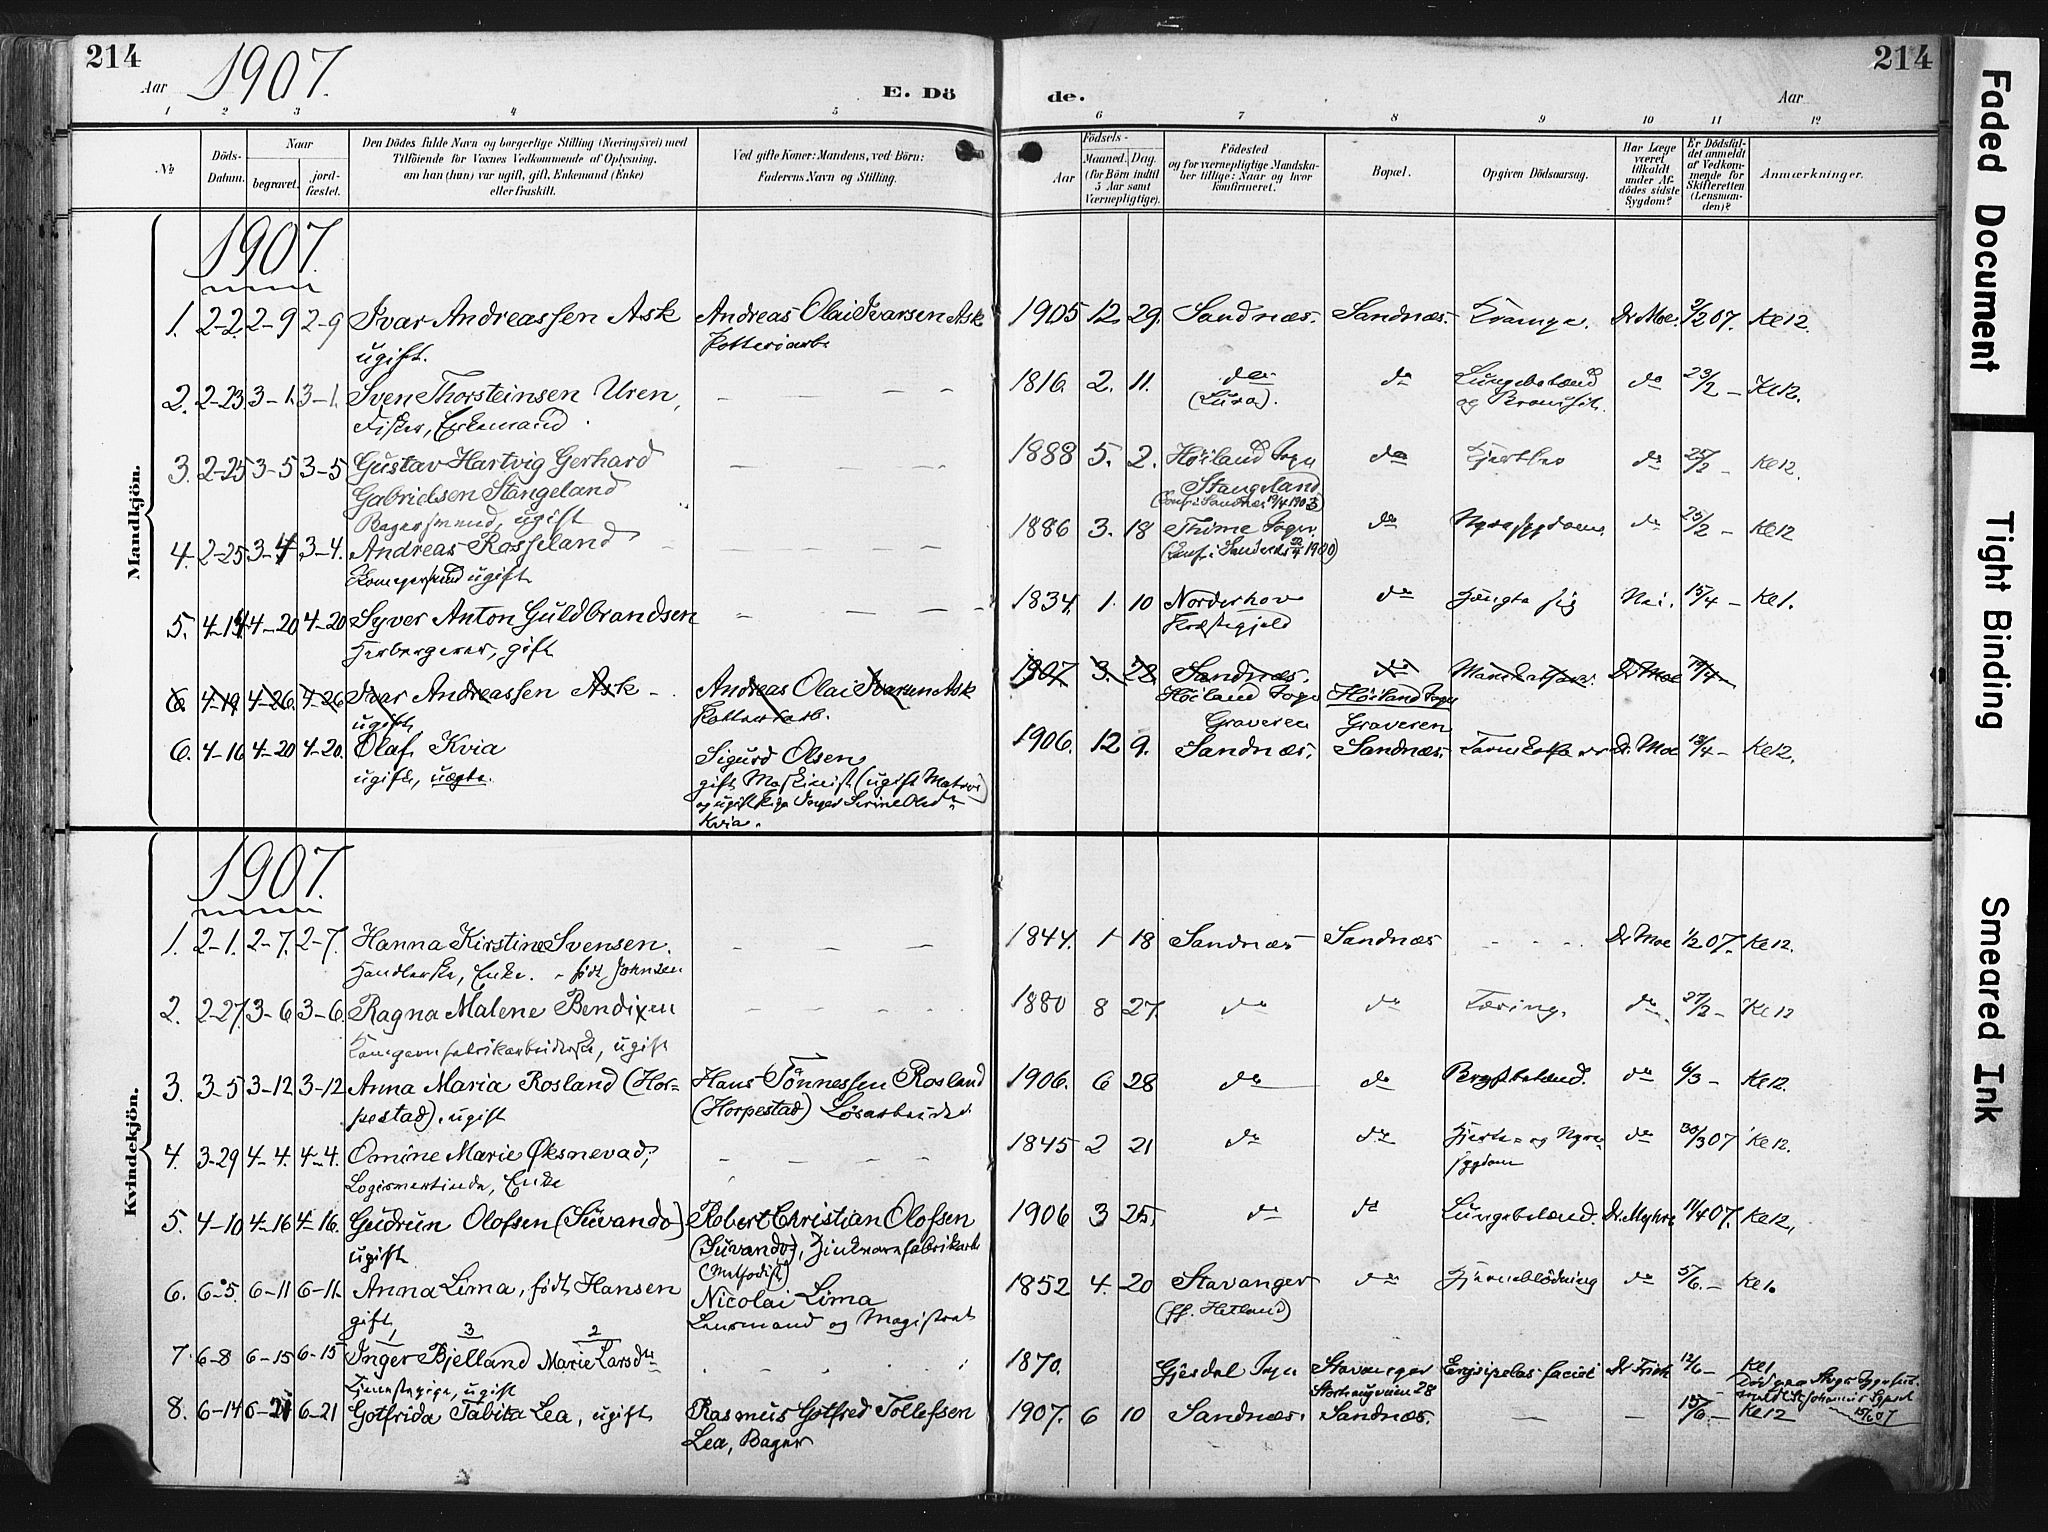 214
1907.
Aar
E. Dö
de.
Aar
214
1 2 3 4 5 6 7 8 9 10 11 12
No.
Döds-Datum.
Naar
begravet.
jord-fæstet.
Den Dödes fulde Navn og borgerlige Stilling (Næringsvei) med
Tilföiende for Voxnes Vedkommende af Oplysning,
om han (hun) var ugift, gift, Enkemand (Enke)
eller fraskilt.
Ved gifte Koner: Mandens, ved Börn:
Faderens Navn og Stilling.
Födsels-
Aar
Maaned. Dag.
(for Börn indtil
5 Aar samt
Værnepligtige).
Födested
og for værnepligtige Mandska-
ber tillige: Naar og hvor
konfirmeret.
Bopæl.
Opgiven Dödsaarsag.
Har Læge
været
tilkaldt
under Af-
dödes sidste
Sygdom?
Er Dödsfal-
det anmeldt
af Vedkom-
mende for
Skifteretten
(Lensman-
den)?
Anmærkninger.
Mandkjön.
1907.
1. 2-2. 2-9 2-9 Ivar Andreassen Ask Andreas Olai Ivarsen Ask 1905 12. 29. Sandnæs. Sandnæs. Krampe. Dr Moe. 2/2 07. Kl 12.
ugift. Potteriarb.
2. 2-23. 3-1. 3-1. Sven Thorsteinsen Uren, 1816. 2. 11. do do Lungebetænd do 23/2 - Kl 12.
Fisker, Enkemand. (Lura). og
3. 2-25 3-5 3-5 Gustav Hartvig Gerhard 1888 5. 2. Höiland Sogn do do 25/2 - Kl 12.
Gabrielsen Stangeland Stangeland
Bagersvend, ugift (Conf. i Sandnes 19/4 1903)
4. 2-25. 3-4 3-4. Andreas Rosseland 1886 3. 18 Thime Sogn. do Nyresygdom do 25/2 - Kl 12
ugift (Conf. i Sandnæs 1900)
5. 4-14 4-20 4-20 Syver Anton Guldbrandsen 1834. 1. 10 Norderhov do Hængte sig Nei. 15/4 - Kl 1.
Herbergerer, gift Præstegjeld
6. 4-19 4-26. 4-26 Ivar Andreassen Ask - Andreas Olai Ivarsen Ask 1907. 3. 28. Sandnæs. do Dr Moe 19/4 -
ugift Potteriarb. Höiland Sogn Höiland Sogn
Graveren Graveren
6. 4-16 4-20 4-20. Olaf Kvia Sigurd Olsen 1906. 12 9. Sandnæs. Sandnæs. Dr. Moe 18/4 - Kl 12.
ugift, uægte. gift Maskinist (ugift Matros)
og ugift Pige Inger Serine Olsdtr
Kvia.
Kvindekjön.
1907.
1. 2-1. 2-7. 2-7. Hanna Kirstine Svensen. 1844. 1 18 Sandnæs Sandnæs Dr Moe 1/2 07. Kl 12.
Handlerske, Enke. - født Johnsen
2. 2-27. 3-6 3-6. Ragna Malene Bendixen 1880 8 27. do do Tæring. do 27/2 - Kl 12
Kamgarnfabrikarbeiderske, ugift
3. 3-5 3-12 3-12 Anna Maria Rosland (Hor- Hans Tönnessen Rosland 1906. 6 28 do do Brystbetænd. do 6/3 - Kl 12.
pestad). ugift (Horpestad) Løsarbeider
4. 3-29 4-4. 4-4. Omine Marie Øksnevad, 1845 2 21 do do Hjerte- og Nyre- do 30/3 07 Kl 12.
Logisvertinde, Enke sygdom
5. 4-10 4-16 4-16. Gudrun Olofsen (Suvando) Robert Christian Olofsen 1906 3 25. do do Lungebetænd. Dr. Myhre 11/4 07. Kl 12.
ugift (Suvando), Zinkvarefabrikarb
(Methodist)
6. 6-5. 6-11 6-11. Anna Lima, født Hansen Nicolai Lima 1852 4. 20 Stavanger do Hjerneblödning do 5/6. - Kl 1.
gift, Lensmand og Magistrat (ff. Hetland)
7. 6-8 6-15 6-15 Inger Bjelland Marie Larsdtr 1870. Gjesdal Sogn Stavanger Erysipelas faciei 12/6 - Kl 1
3 2
Tjenestepige, ugift Storhaugveien 28
8. 6-14 6-21 6-21 Gotfrida Tabita Lea, ugift Rasmus Gotfred Tollefsen 1907. 6 10 Sandnæs. Sandnæs. 15/6 - Kl 12
Lea, Bager
15/6 07
Faded Document
Tight Binding
Smeared Ink